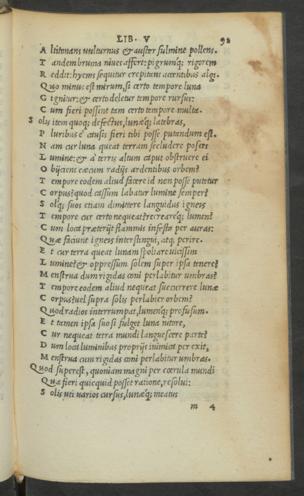 LIB. V 92
A ltitonans uulturnus & auster fulmine pollens.
T andem bruma niues affert: pigrumq; rigorem
R eddit: hyems sequitur crepitans ac dentibus algi.
Q uo minus est mirum, si certo tempore luna
G ignitur: & certo deletur tempore rursus:
C um fieri possint tam certo tempore multa.
S olis item quoq; defectus, lunæq; latebras,
P luribus è causis fieri tibi posse putandum est.
N am cur luna queat terram secludere solis
L umine: & à terris altum caput obstruere ei
O biiciens cæcum radijs ardentibus orbem?
T empore eodem aliud facere id non posse putetur
C orpus: quod cassum labatur lumine semper?
S olq; suos etiam dimittere languidus igneis
T empore cur certo nequeat? recrearéq; lumen?
C um loca præterijt flammis infesta per auras:
Q uæ faciunt igneis interstingui, atq; perire.
E t cur terra queat lunam spoliare uicissim
L umine: & oppressum solem super ipsa tenere?
M enstrua dum rigidas coni perlabitur umbras?
T empore eodem aliud nequeat succurrere lunæ
C orpus: uel supra solis perlabier orbem?
Q uod radios interrumpat, lumenq; profusum.
E t tamen ipsa suo si fulget luna nitore,
C ur nequeat terra mundi languescere parte?
D um loca luminibus proprijs inimica per exit,
M enstrua cum rigidas coni perlabitur umbras.
Q uod superest, quoniam magni per cœrula mundi
Q ua fieri quicquid posset ratione, resolui:
S olis uti uarios cursus, lunæq; meatus
m 4